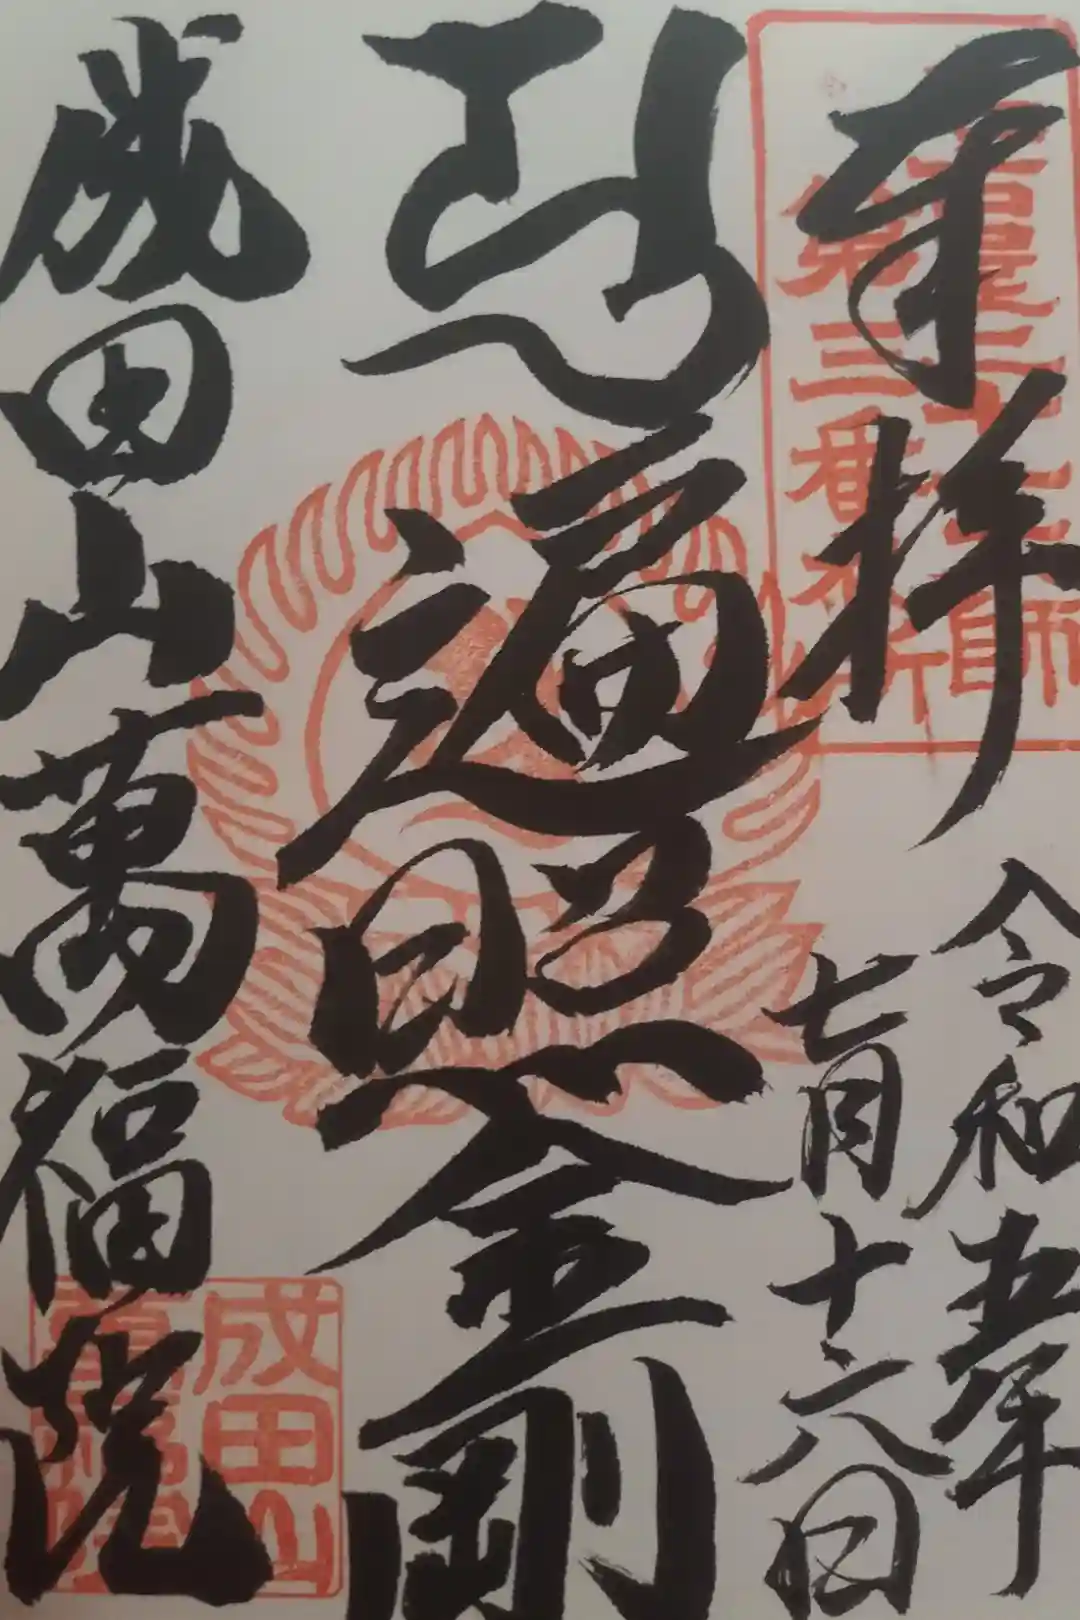 名古屋二十一大師
第三番札所
奉拝
令和五年
七月十六日
遍照金剛
成田山萬福院
成田山
萬福院